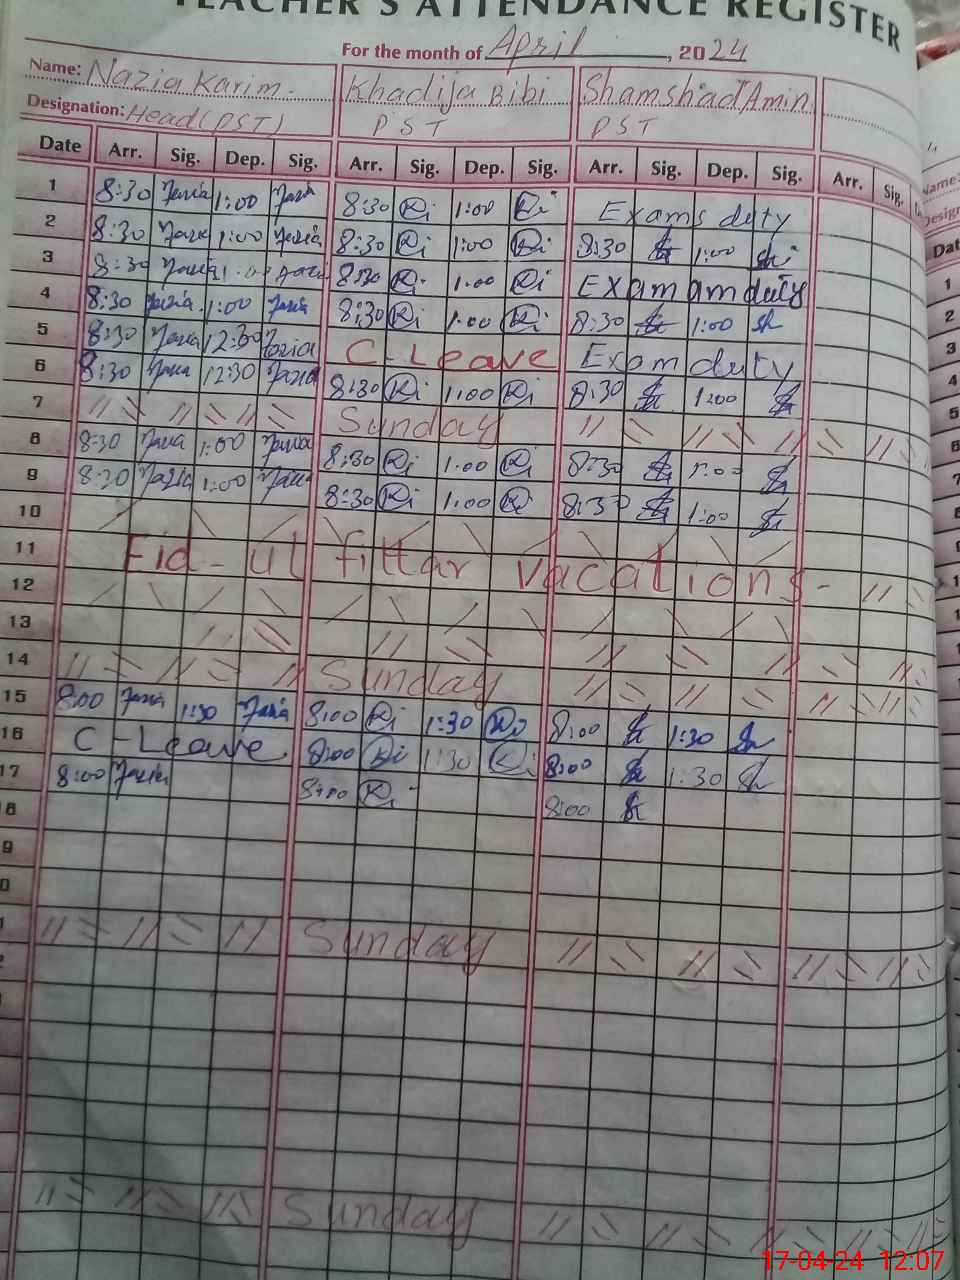 TEACHER'S ATTENDANCE REGISTER
For the month of April, 2024
Name: Nazia Karim. Khadija Bibi Shamshad Amin
Designation: Head (PST) PST PST
Date Arr. Sig. Dep. Sig. Arr. Sig. Dep. Sig. Arr. Sig. Dep. Sig. Arr. Sig.
1 8:30 Nazia 1:00 Nazia 8:30 Ki 1:00 Ki Exams duty
2 8:30 Nazia 1:00 Nazia 8:30 Ki 1:00 Ki 8:30 Sh 1:00 Sh
3 8:30 Nazia 1:00 Nazia 8:30 Ki 1:00 Ki Exam am duty
4 8:30 Nazia 1:00 Nazia 8:30 Ki 1:00 Ki 8:30 Sh 1:00 Sh
5 8:30 Nazia 12:30 Nazia C-Leave Exam duty
6 8:30 Nazia 12:30 Nazia 8:30 Ki 1:00 Ki 8:30 Sh 1:00 Sh
7 Sunday
8 8:30 Nazia 1:00 Nazia 8:30 Ki 1:00 Ki 8:30 Sh 1:00 Sh
9 8:30 Nazia 1:00 Nazia 8:30 Ki 1:00 Ki 8:30 Sh 1:00 Sh
10
11 Eid-ul fittar vacations-
12
13
14 Sunday
15 8:00 Nazia 1:30 Nazia 8:00 Ki 1:30 Ki 8:00 Sh 1:30 Sh
16 C-Leave 8:00 Ki 1:30 Ki 8:00 Sh 1:30 Sh
17 8:00 Nazia 8:00 Ki 8:00 Sh
8
9
0
Sunday
Sunday
17-04-24 12:07